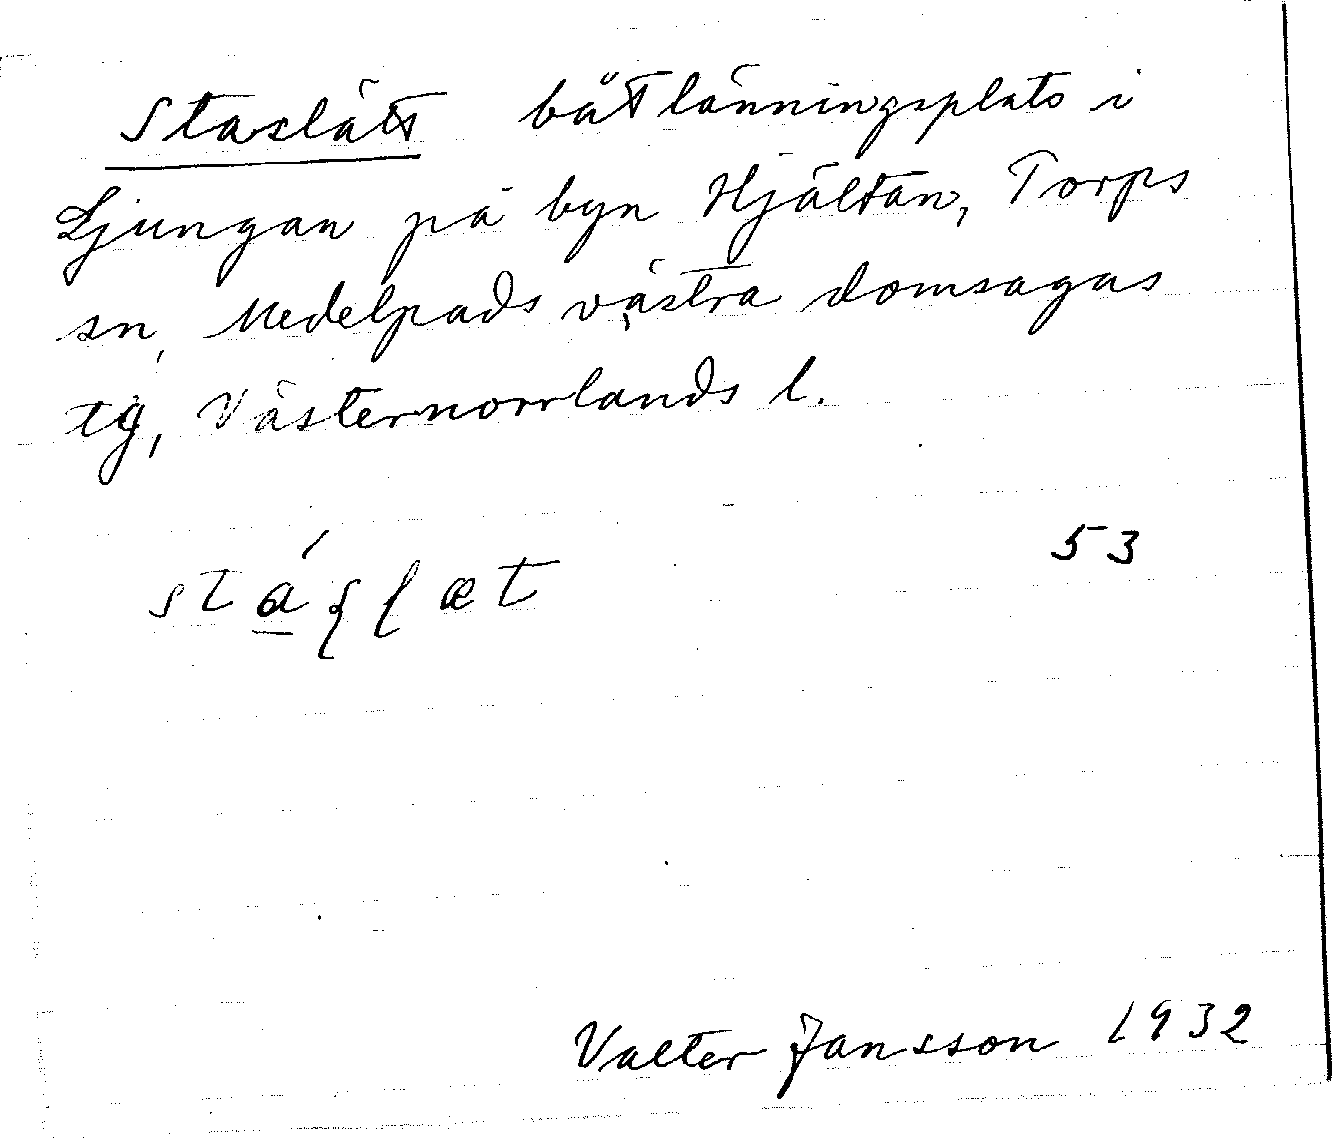 Staslätt båtlänningsplats i
Ljungan på byn Hjältan, Torps
sn, Medelpads västra domsagas
tg, Västernorrlands l.
53
Valter Jansson 1932